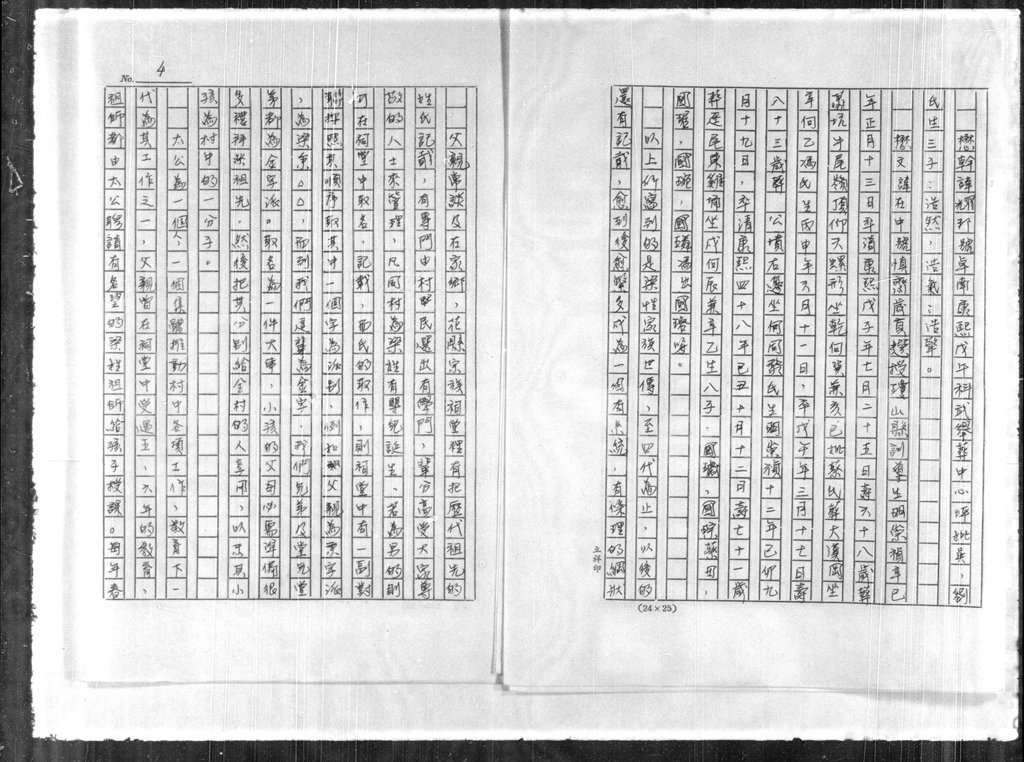 懋幹諱耀珍號卓南康熙戊午科武舉葬中心坪妣吳,劉
氏生三子:浩然,浩氣:浩擎。
懋文諱在中號慎齋歲貢授瓊山縣訓導生明崇禎辛巳
年正月十三日卒清康熙戊子年七月二十五日壽六十八歲葬
坑牛尾嶺頂仰天螺形坐乾向巽兼亥巳妣蔡氏葬大漢岡坐
辛向乙馮氏生丙申年六月十一日,卒戊午年三月十七日壽
八十三歲葬 公墳右邊坐向同發氏生明崇禎十二年己卯九
月十九日,卒清康熙四十八年己丑十月十二日壽七十一歲
葬連尾東雞坐戌向辰兼辛乙生八子,國璣,國琮蔡出,
國瑠,國琬,國璘馮出國
以上所寫到的是梁姓家族世傳,至四代為止,以後的
還有記載,愈到後愈繁多成為一個有系統,有條理的網狀
立祥印
(24×25)
No. 4
父親常談及在家鄉,花縣宗族祠堂裡有把歷代祖先的
姓氏記載,有專門由村民選出有學門,輩分高受大家尊
敬的人士來管理,凡同村為梁姓有嬰兒誕生,若為男的則
可在祠堂中取名,記載,而氏的取作,則祠堂中有一副對
聯按照其順序取其中一個字為派別,例如祖父親為秉字派
,為梁秉○○,而到我們這輩為金字,我們兄弟及堂兄堂
弟都為金字派。取名為一件大事,小孩的父母必需準備很
多禮拜祭祖先,然後把其分別給全村的人享用,以示其小
孩為村中的一分子。
太公為一個人,一個集體推動村中各項工作,教育下一
代為其工作之一,父親曾在祠堂中受過五,六年的教育,
祖師都由太公聘請有名望的梁姓祖師給孩子授課。每年春